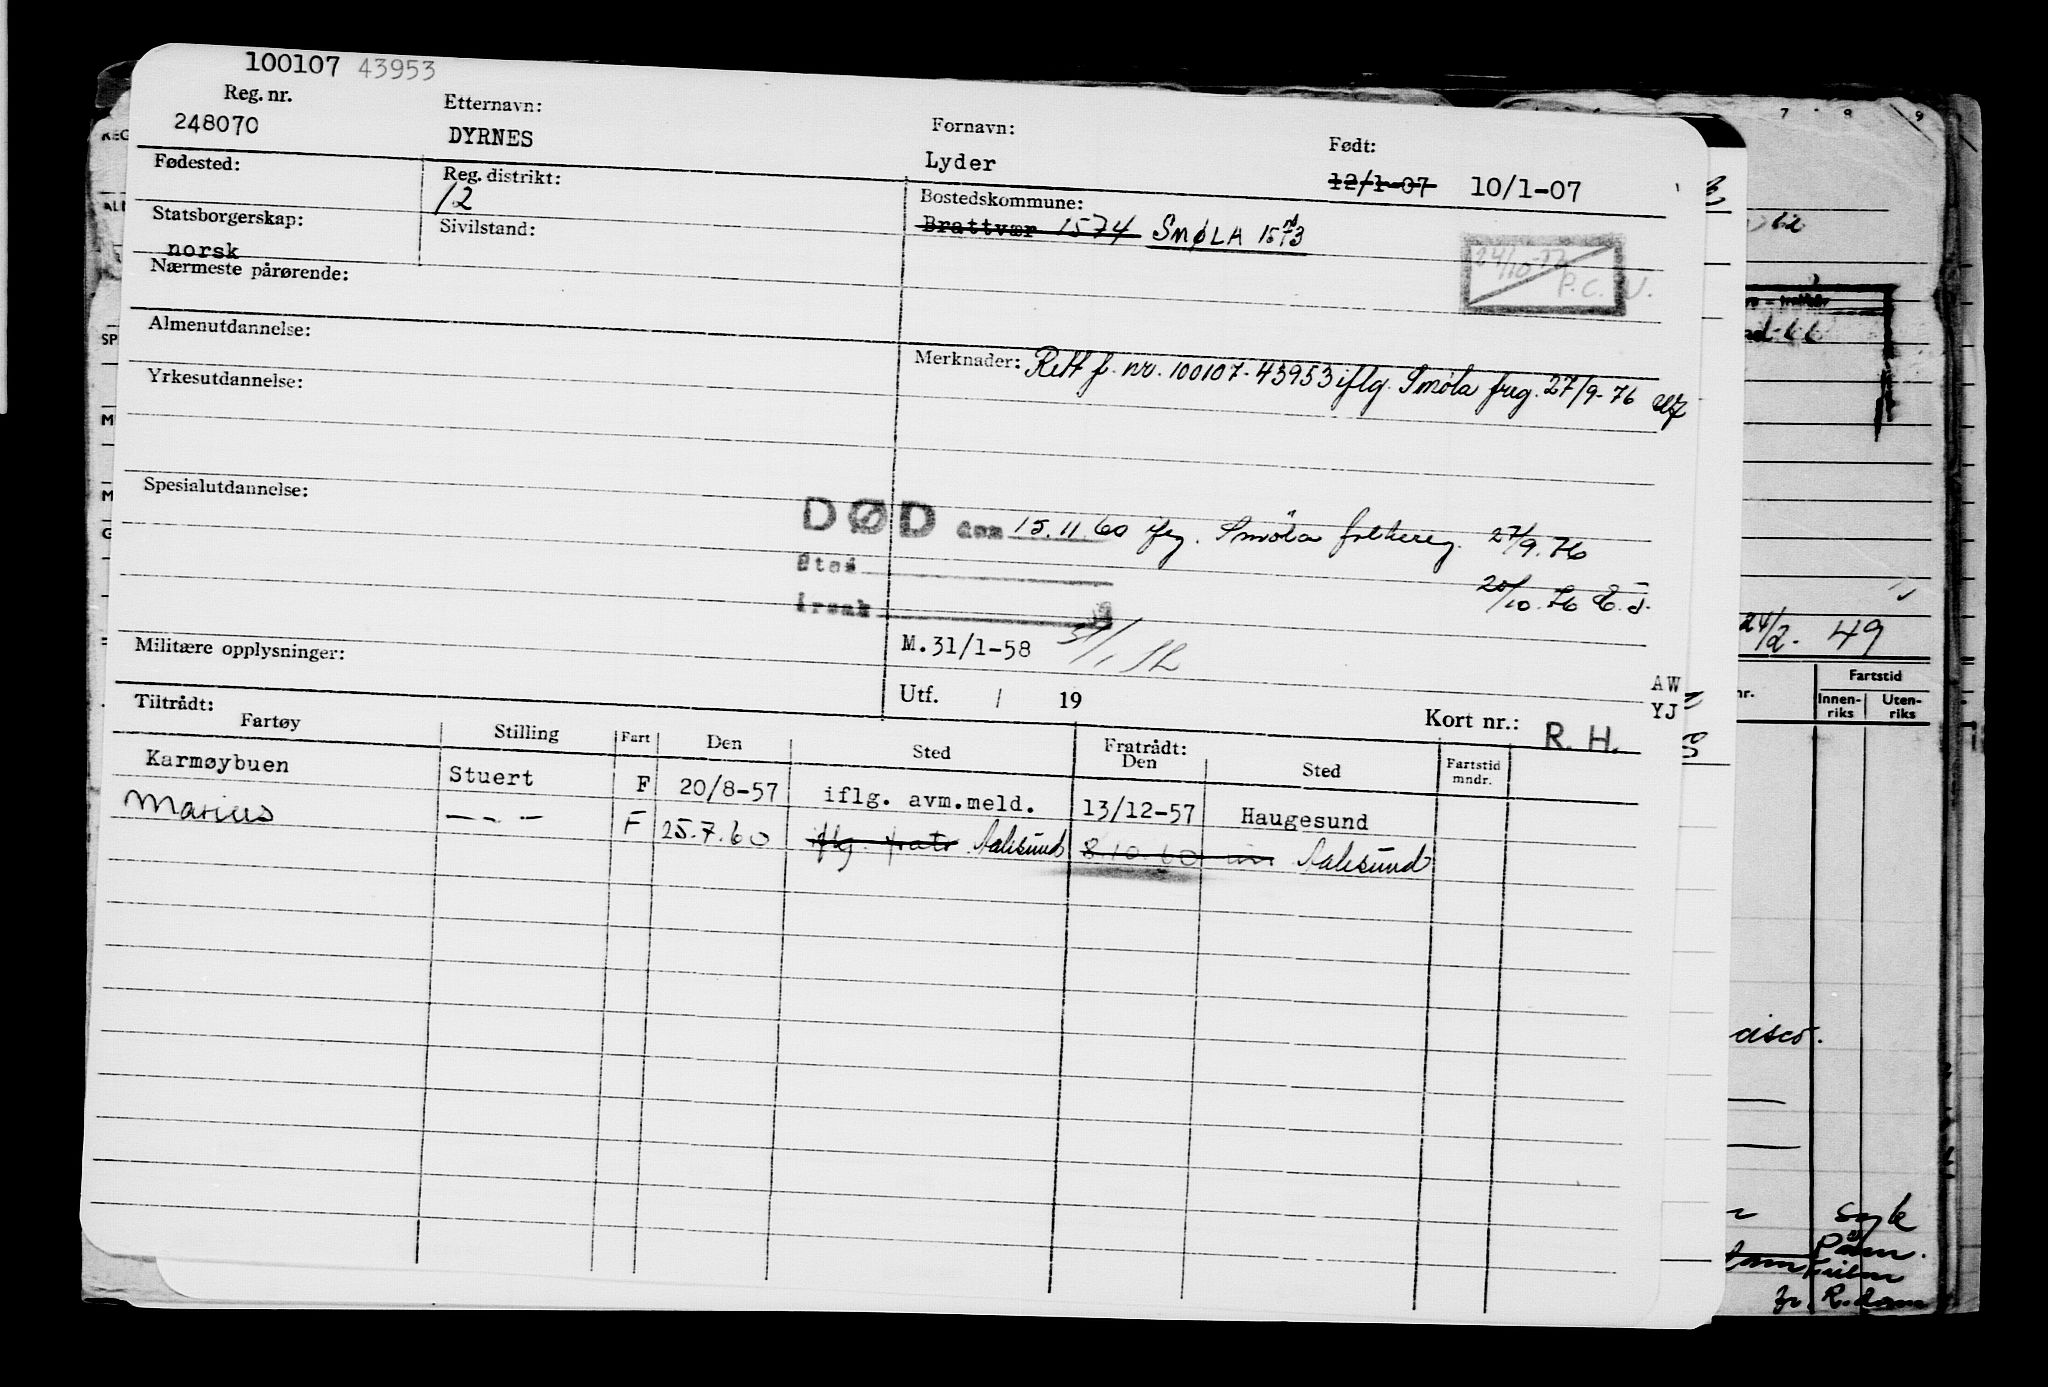 100107 43953
Reg. nr. Etternavn: Fornavn: Født:
248070 DYRNES Lyder 12/1-07 10/1-07
Fødested: Reg. distrikt: Bostedskommune:
12 Brattvær 1574 SMØLA 1573
Statsborgerskap: Sivilstand:
norsk
24/10-77
P.C.N.
Nærmeste pårørende:
Almenutdannelse: Merknader: Rett f. nr. 100107-43953 iflg. Smøla freg. 27/9-76
Yrkesutdannelse:
Spesialutdannelse:
DØD den 15.11.60 ifg. Smöla folkereg. 27/9.76
Sted 20/10.76
Årsak
Militære opplysninger: M.31/1-58
Utf. / 19 Kort nr.: R. H.
AW
YJ
Tiltrådt: Fratrådt:
Fartøy Stilling Fart Den Sted Den Sted Fartstid mndr.
Karmøybuen Stuert F 20/8-57 iflg. avm.meld. 13/12-57 Haugesund
Marius — - — F 25.7.60 iflg. fratr Aalesund 8.10.60 Aalesund
7 8 9
24/2- 49
nr. Fartstid
Innen-riks Uten-riks
cisco.
syk
R.dam